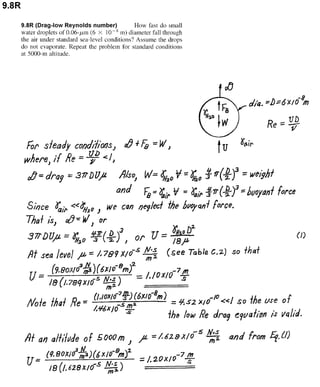 9.8R
9.8R (Drag-low Reynolds number) How fast do small
water droplets of 0.06-μm (6 × 10⁻⁸ m) diameter fall through
the air under standard sea-level conditions? Assume the drops
do not evaporate. Repeat the problem for standard conditions
at 5000-m altitude.
𝒟
F_B
W
U
γ_H₂O
γ_air
dia. = D = 6x10⁻⁸ m
Re = UD/ν
For steady conditions, 𝒟 + F_B = W,
where, if Re = UD/ν < 1,
𝒟 = drag = 3πDUμ Also, W = γ_H₂O V = γ_H₂O 4/3 π(D/2)³ = weight
and F_B = γ_air V = γ_air 4/3 π(D/2)³ = buoyant force
Since γ_air << γ_H₂O, we can neglect the buoyant force.
That is, 𝒟 = W, or
3πDUμ = γ_H₂O 4π/3 (D/2)³, or U = γ_H₂O D²/18μ (1)
At sea level μ = 1.789 x10⁻⁵ N·s/m² (see Table C.2) so that
U = (9.80x10³ N/m³)(6x10⁻⁸ m)² / 18(1.789x10⁻⁵ N·s/m²) = 1.10x10⁻⁷ m/s
Note that Re = (1.10x10⁻⁷ m/s)(6x10⁻⁸ m) / 1.46x10⁻⁵ m²/s = 4.52 x10⁻¹⁰ <<1 so the use of
the low Re drag equation is valid.
At an altitude of 5000 m, μ = 1.628 x10⁻⁵ N·s/m² and from Eq.(1)
U = (9.80x10³ N/m³)(6x10⁻⁸ m)² / 18(1.628x10⁻⁵ N·s/m²) = 1.20x10⁻⁷ m/s